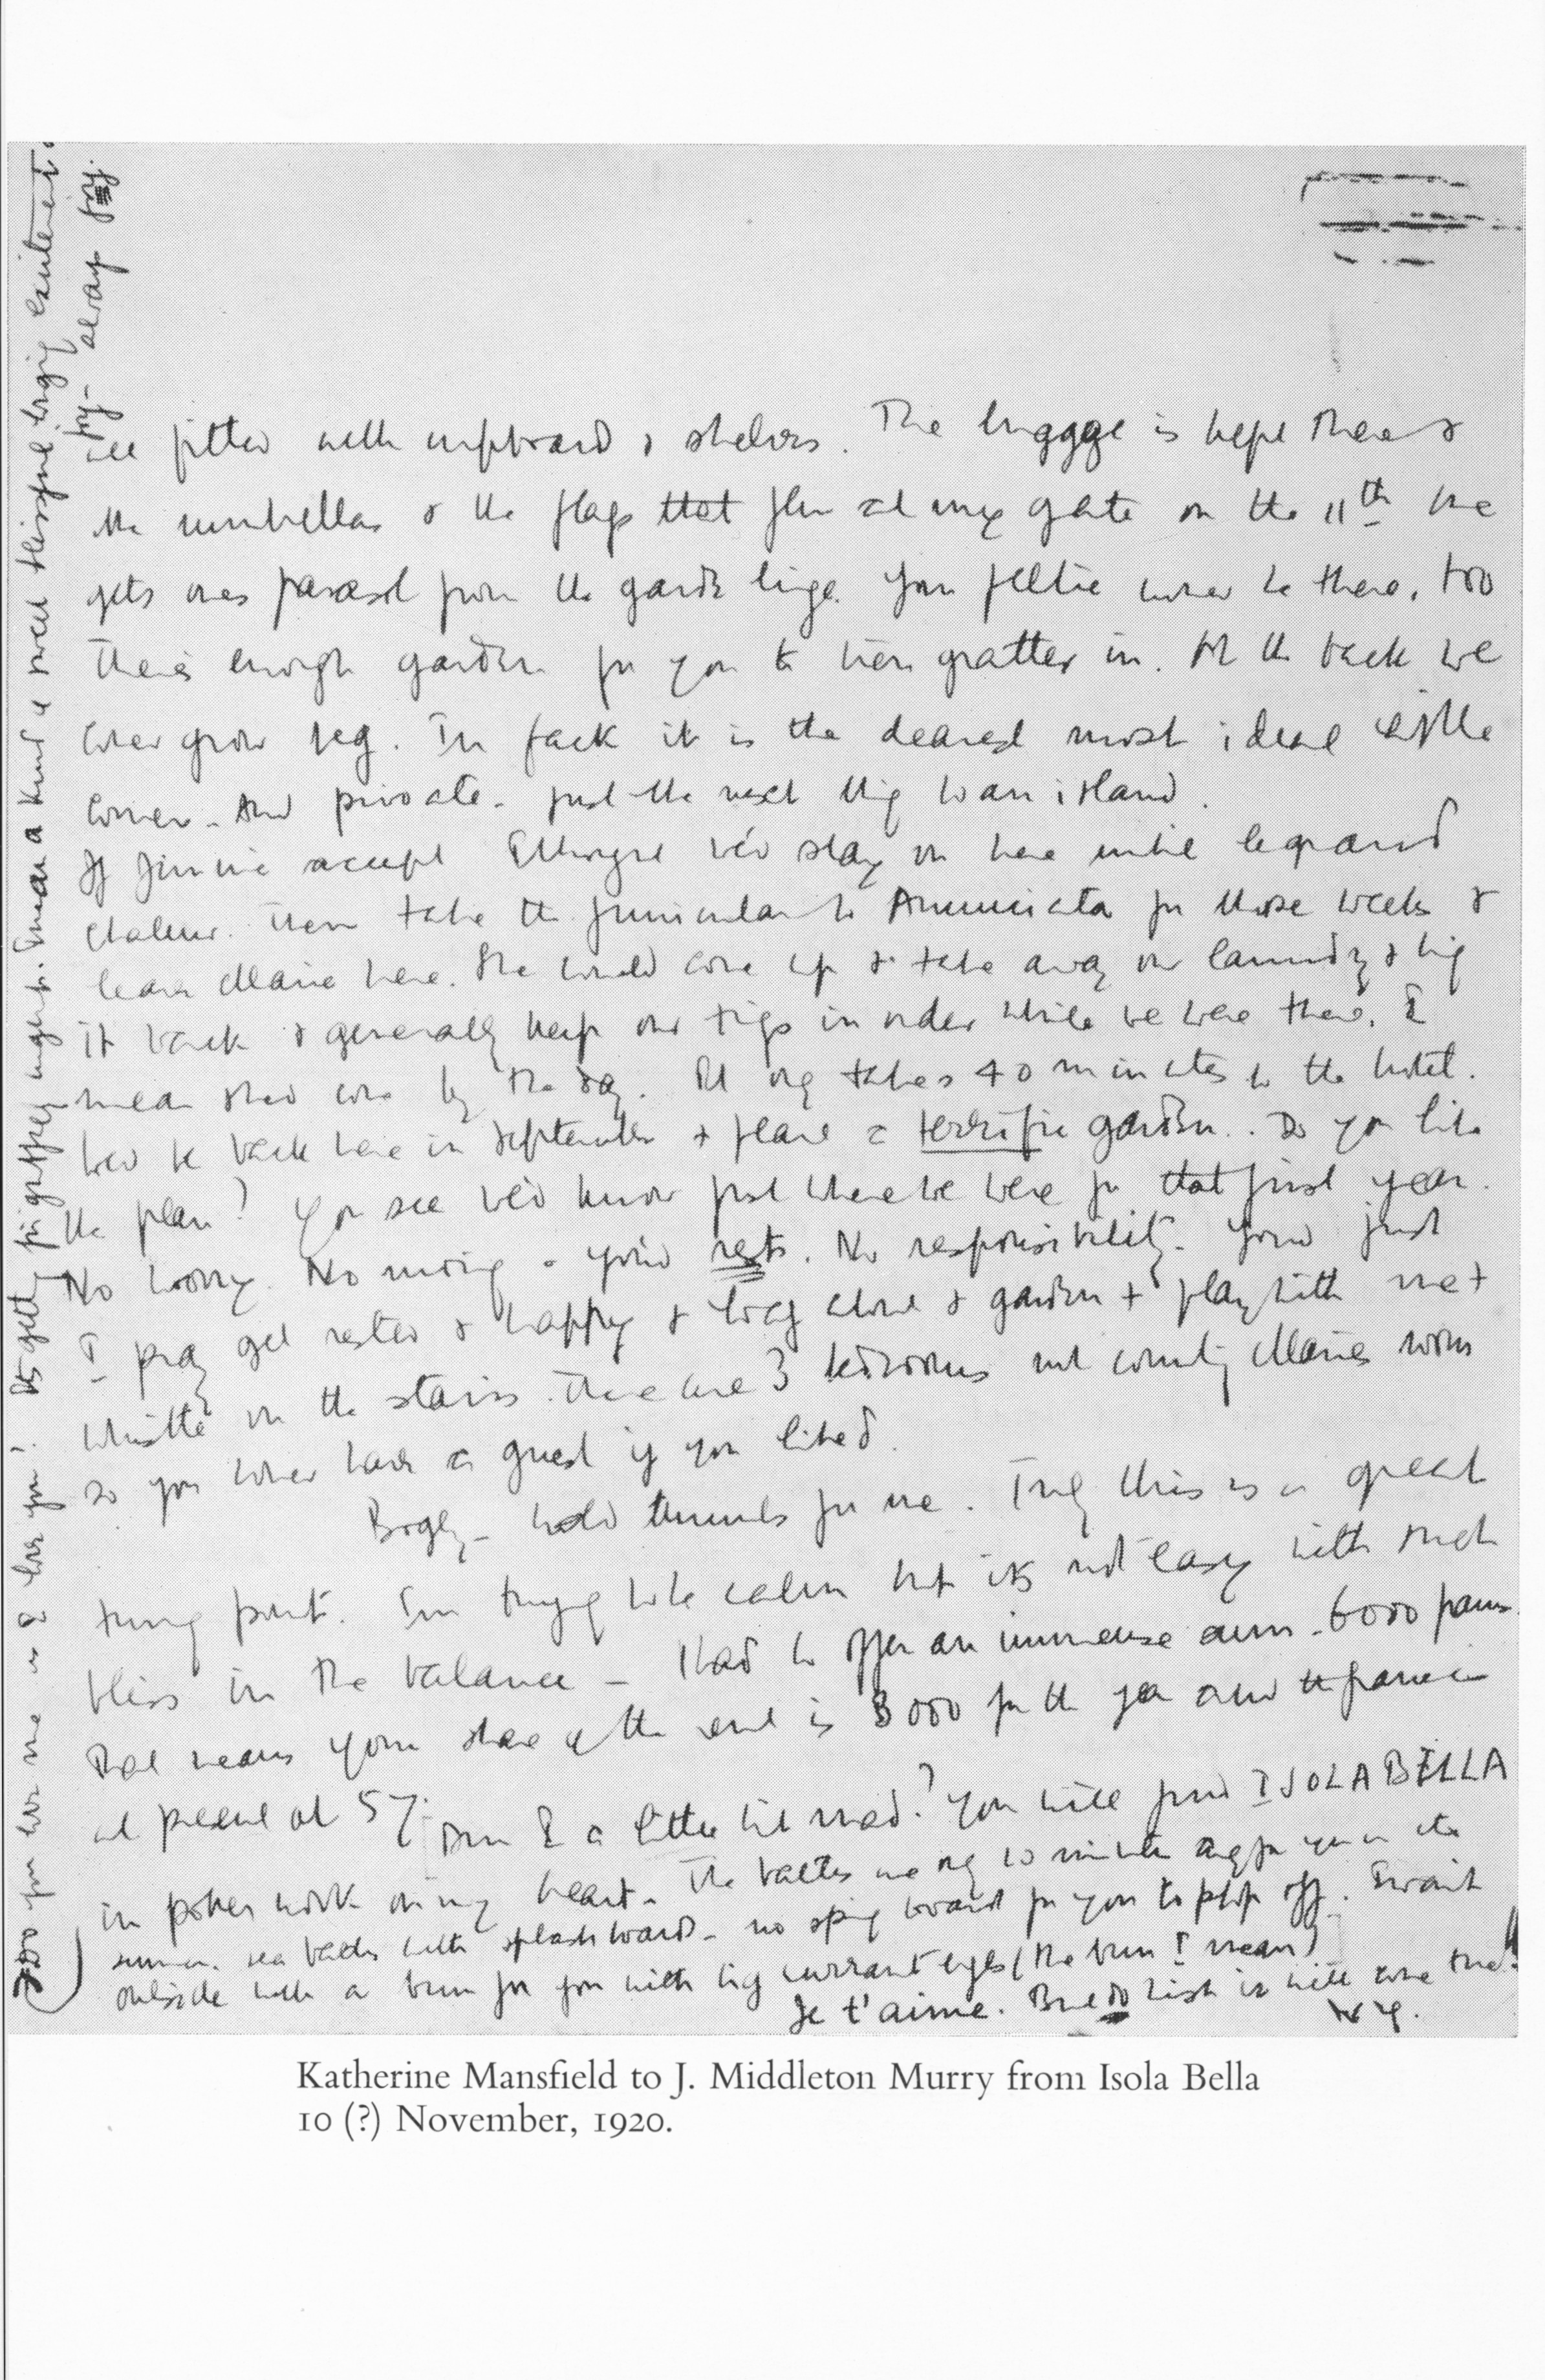 all fitted with cupboards & shelves. The luggage is kept there &
the umbrellas & the flags that flew at my gate on the 11th. One
gets ones parasol from the garde linge. Your feltie would be there, too
There's enough garden for you to bien gratter in. At the back we
could grow veg. In fact it is the dearest most ideal little
corner. And private - just the next thing to an island.
If Jinnie accepts we'd stay on here until le grand
chaleur. Then take the funicular to Annunciata for those weeks &
leave Marie here. She would come up & take away our laundry & bring
it back & generally keep our things in order while we were there. I
mean shed come by the day. It only takes 40 minutes to the hotel.
We'd be back here in September & plant a terrific garden. Do you like
the plan? You see we'd know just where we were for that first year.
No worry. No moving - you'd rest. No responsibility. You'd just
I pray get rested & happy & lazy alone & garden & play with me &
whistle on the stairs. There are 3 bedrooms not counting Maries rooms
so you could have a guest if you liked.
Bogey - hold thumbs for me. Truly this is a great
turning point. Im trying to be calm but its not easy with such
bliss in the balance - I had to offer an immense sum - 6000 francs.
That means your share of the rent is 3000 for the year and the franc is
at present at 57. Am I a little bit mad? You will find ISOLA BELLA
in poker work on my heart. The baths are only 10 minutes away for you in the
summer. sea baths with splash boards - no spring board for you to plop off. I wait
outside with a bun for you with big currant eyes (the bun I mean)
Je t'aime. But do wish it will come true!!
Wig.
Do you love me as I love you? Its getting frightfully urgent. I mean a kind of sweet blissful tingling excitement.
joy - always joy.
Katherine Mansfield to J. Middleton Murry from Isola Bella
10 (?) November, 1920.